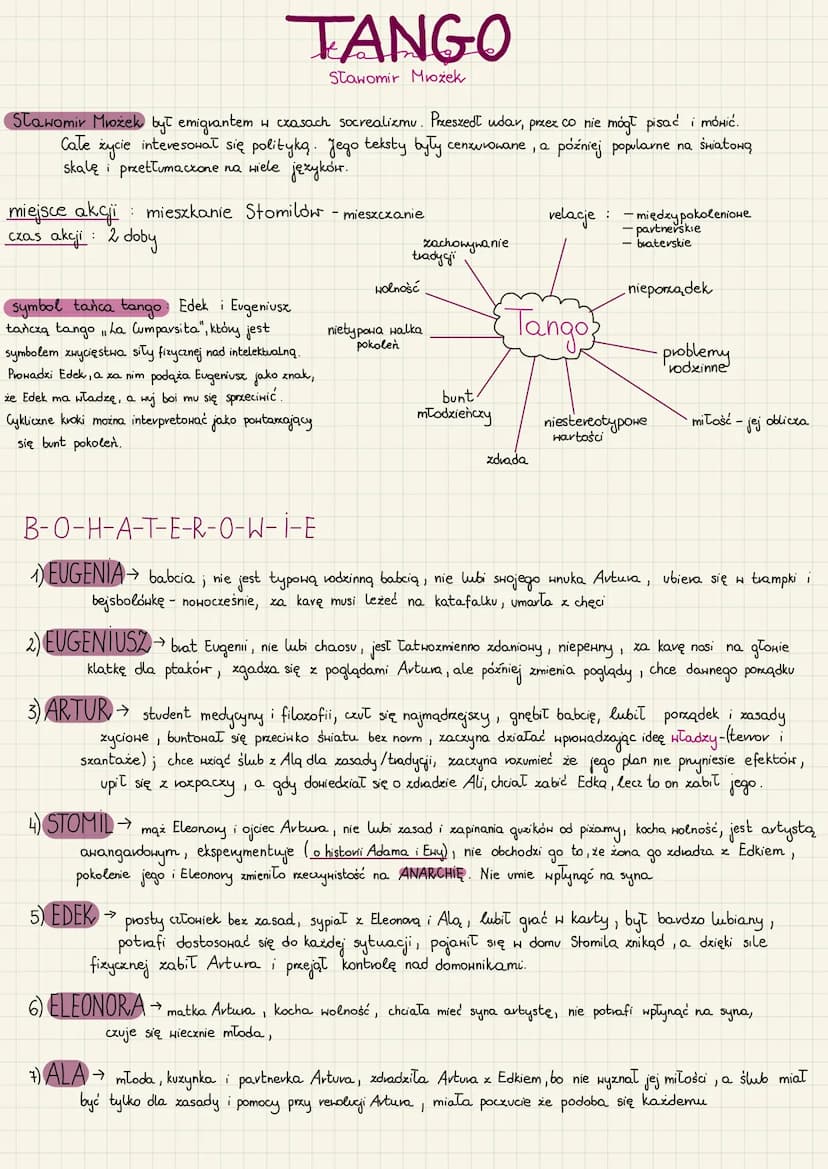 TANGO
tango
Sławomir Mrożek
Sławomir Mrożek był emigrantem w czasach socrealizmu. Przeszedł udar, przez co nie mógł pisać i mówić.
Całe życie interesował się polityką. Jego teksty były cenzurowane, a później popularne na światową
skalę i przetłumaczone na wiele języków.
miejsce akcji : mieszkanie Stomilów - mieszczanie
czas akcji : 2 doby
relacje : - międzypokoleniowe
- partnerskie
- braterskie
zachowywanie
tradycji
wolność
nieporządek
nietypowa walka
pokoleń
Tango
problemy
rodzinne
bunt
młodzieńczy
niestereotypowe
wartości
miłość - jej oblicza
zdrada
symbol tańca tango: Edek i Eugeniusz
tańczą tango „La Cumparsita", który jest
symbolem zwycięstwa siły fizycznej nad intelektualną.
Prowadzi Edek, a za nim podąża Eugeniusz jako znak,
że Edek ma władzę, a wuj boi mu się sprzeciwić.
Cykliczne kroki można interpretować jako powtarzający
się bunt pokoleń.
B-O-H-A-T-E-R-O-W-I-E
1) EUGENIA → babcia ; nie jest typową rodzinną babcią, nie lubi swojego wnuka Artura, ubiera się w trampki i
bejsbolówkę - nowocześnie, za karę musi leżeć na katafalku, umarła z chęci
2) EUGENIUSZ → brat Eugenii, nie lubi chaosu, jest łatwozmienno zdaniowy, niepewny, za karę nosi na głowie
klatkę dla ptaków, zgadza się z poglądami Artura, ale później zmienia poglądy, chce dawnego porządku
3) ARTUR → student medycyny i filozofii, czuł się najmądrzejszy, gnębił babcię, lubił porządek i zasady
życiowe, buntował się przeciwko światu bez norm, zaczyna działać wprowadzając ideę władzy-(terror i
szantaże) ; chce wziąć ślub z Alą dla zasady/tradycji, zaczyna rozumieć że jego plan nie przyniesie efektów,
upił się z rozpaczy, a gdy dowiedział się o zdradzie Ali, chciał zabić Edka, lecz to on zabił jego.
4) STOMIL → mąż Eleonory i ojciec Artura, nie lubi zasad i zapinania guzików od piżamy, kocha wolność, jest artystą
awangardowym, eksperymentuje (o historii Adama i Ewy), nie obchodzi go to, że żona go zdradza z Edkiem,
pokolenie jego i Eleonory zmieniło rzeczywistość na ANARCHIĘ. Nie umie wpłynąć na syna
5) EDEK → prosty człowiek bez zasad, sypiał z Eleonorą i Alą, lubił grać w karty, był bardzo lubiany,
potrafi dostosować się do każdej sytuacji, pojawił się w domu Stomila znikąd, a dzięki sile
fizycznej zabił Artura i przejął kontrolę nad domownikami.
6) ELEONORA → matka Artura, kocha wolność, chciała mieć syna artystę, nie potrafi wpłynąć na syna,
czuje się wiecznie młoda,
7) ALA → młoda, kuzynka i partnerka Artura, zdradziła Artura z Edkiem, bo nie wyznał jej miłości, a ślub miał
być tylko dla zasady i pomocy przy rewolucji Artura, miała poczucie że podoba się każdemu